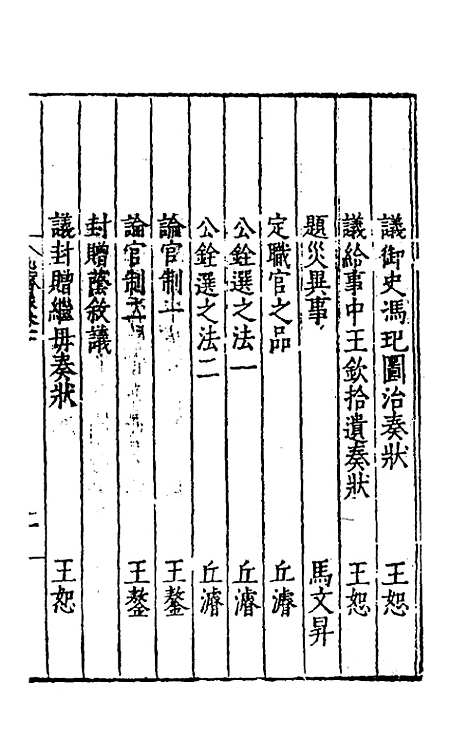 議御史馮玘圖治奏狀 王恕
議給事中王欽拾遺奏狀 王恕
題災異事 馬文昇
定職官之品 丘濬
公銓選之法一 丘濬
公銓選之法二 丘濬
論官制 王鏊
論官制 王鏊
封贈蔭敘議
議封贈繼母奏狀 王恕